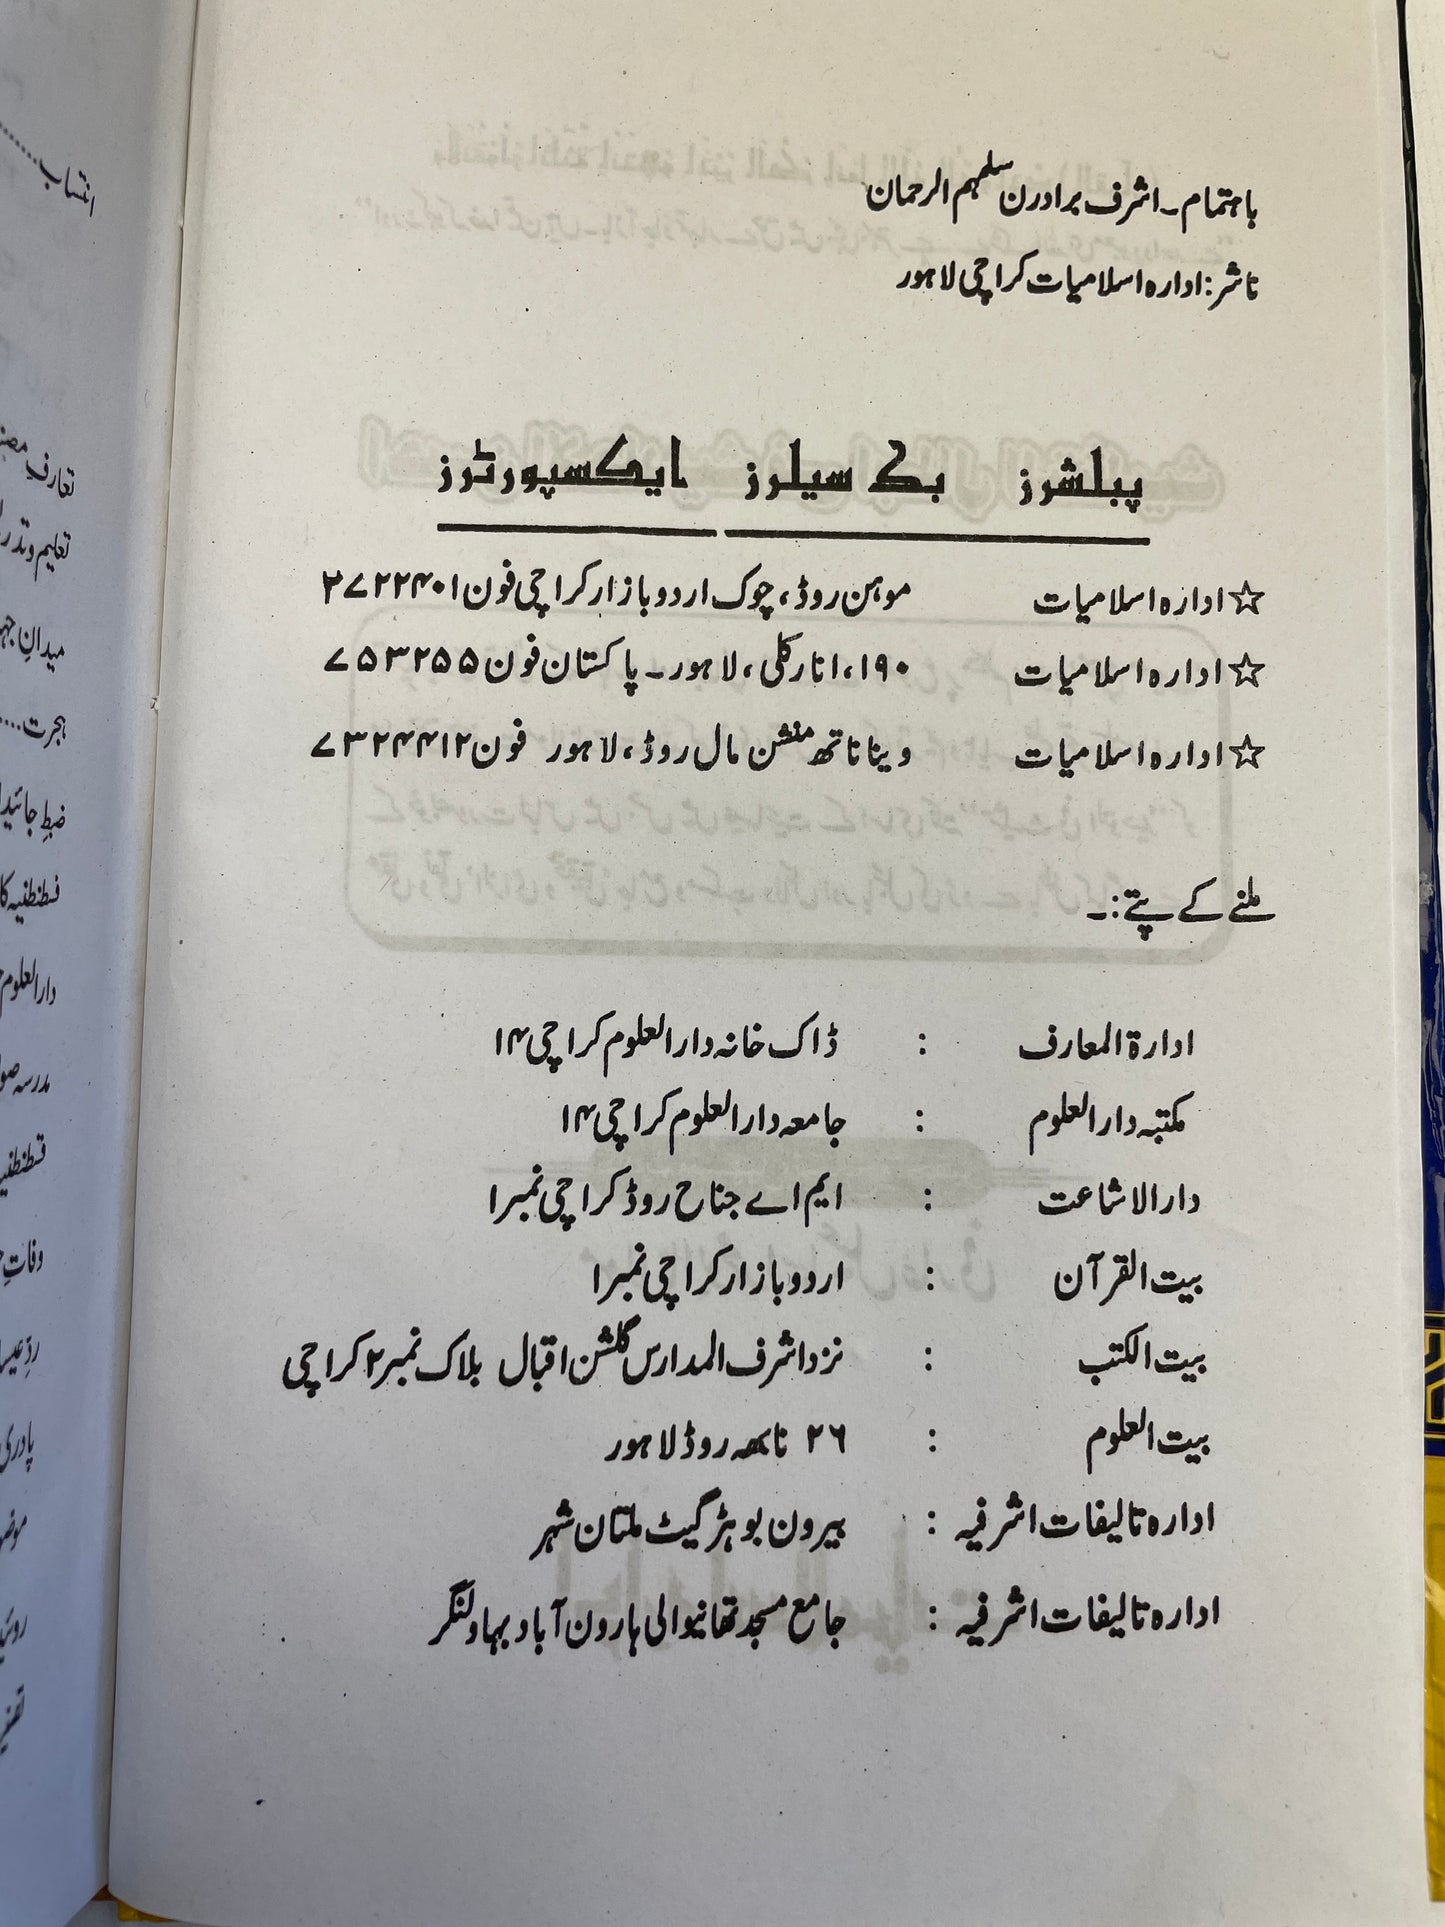 باہتمام۔ اشرف برادرن سلمہم الرحمان
ناشر: ادارہ اسلامیات کراچی لاہور
پبلشرز بک سیلرز ایکسپورٹرز
☆ ادارہ اسلامیات موہن روڈ، چوک اردو بازار کراچی فون ۲۷۲۲۴۰۱
☆ ادارہ اسلامیات ۱۹۰، انارکلی، لاہور۔ پاکستان فون ۷۵۳۲۵۵
☆ ادارہ اسلامیات دینا ناتھ منشن مال روڈ، لاہور فون ۷۳۲۴۴۱۲
ملنے کے پتے:۔
ادارۃ المعارف : ڈاک خانہ دارالعلوم کراچی ۱۴
مکتبہ دارالعلوم : جامعہ دارالعلوم کراچی ۱۴
دارالاشاعت : ایم اے جناح روڈ کراچی نمبر ۱
بیت القرآن : اردو بازار کراچی نمبر ۱
بیت الکتب : نزد اشرف المدارس گلشن اقبال بلاک نمبر ۲ کراچی
بیت العلوم : ۲۶ نابھہ روڈ لاہور
ادارہ تالیفات اشرفیہ : بیرون بوہڑ گیٹ ملتان شہر
ادارہ تالیفات اشرفیہ : جامع مسجد تھانیوالی ہارون آباد بہاولنگر
انتساب
تعارف
میدانِ
ہجرت
ضبط
قسطنطنیہ کا
دارالعلوم
مدرسہ
وفاتِ
پادری